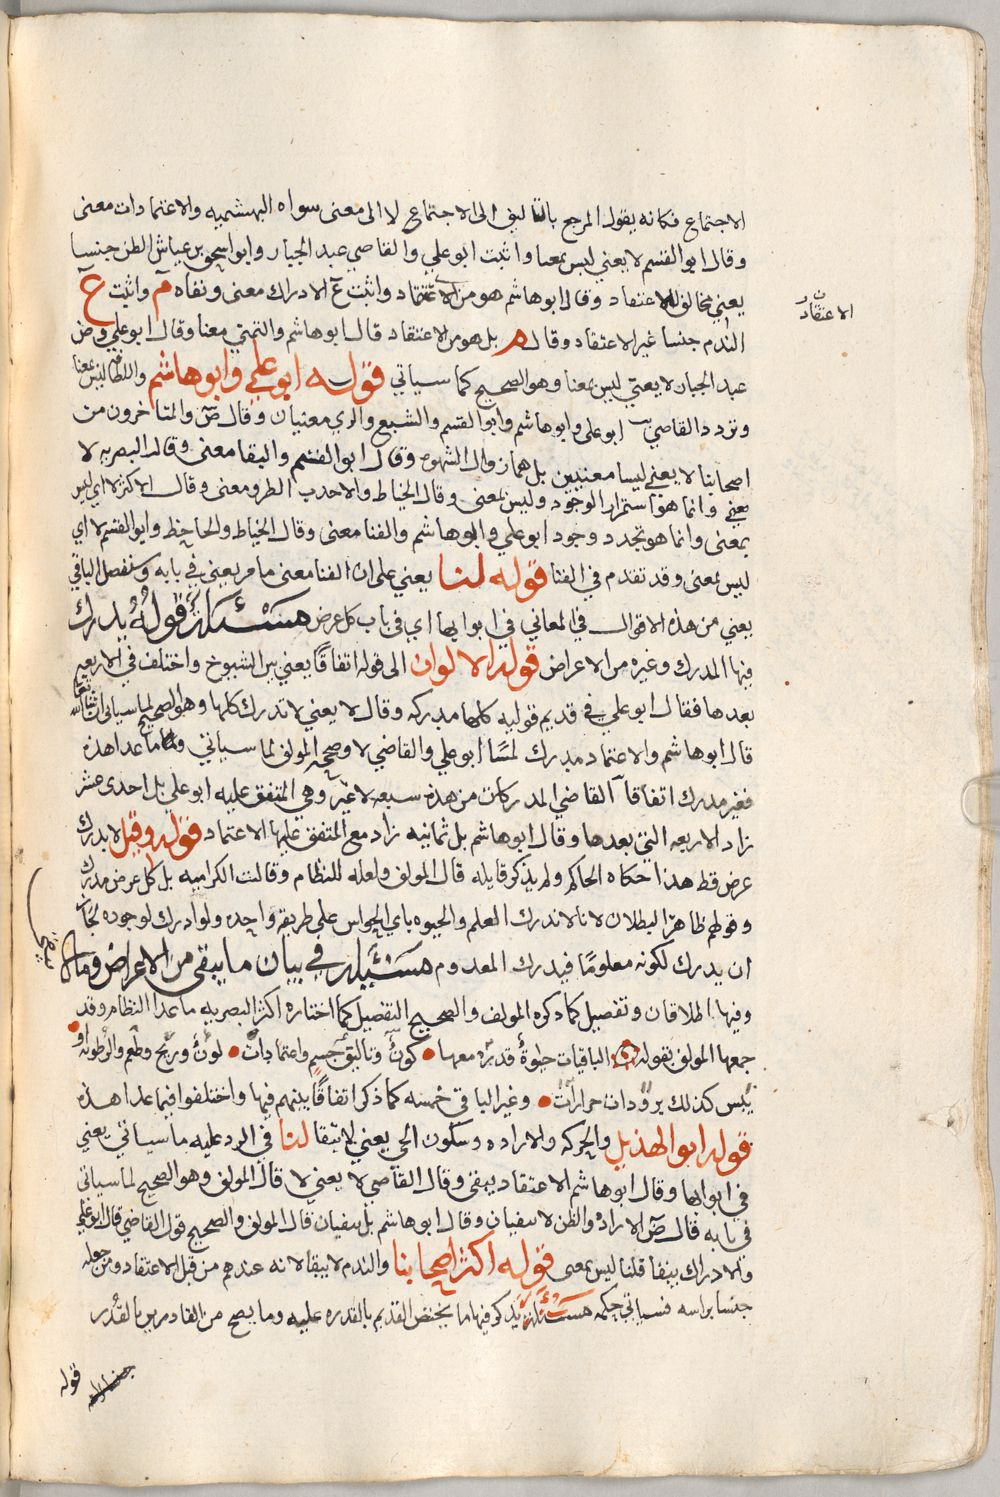 الاجتماع فكانه يقول المرجع بالتاليف الى الاجتماع لا الى معنى سواه البهشميه والاعتمادات معنى
وقال ابو القسم لا يعني ليس بمعنا واثبت ابو علي والقاضي عبد الجبار وابو اسحق بن عياش الظن جنسا
يعني مخالف للاعتقاد وقال ابو هاشم هو من الاعتقاد واثبت ع الادراك معنى ونفاه م واثبت ع
الندم جنسا غير الاعتقاد وقال م بل هو من الاعتقاد قال ابو هاشم والتمني معنا وقال ابو علي وض
عبد الجبار لا يعني ليس بمعنا وهو الصحيح كما سياتي قوله ابو علي وابو هاشم واللطافه ليس بمعنا
وتردد القاضي ابو علي وابو هاشم وابو القسم والشبع والري معنيان وقال ض والمتاخرون من
اصحابنا لا يعني ليسا معنيين بل هما زوال الشهوه وقال ابو القسم والبقا معنى وقالت البصريه لا
يعني وانما هو استمرار الوجود وليس بمعنى وقال الخياط والاحدب الطرو معنى وقال الاكثر لا اي ليس
بمعنى وانما هو تجدد وجود ابو علي وابو هاشم والفنا معنى وقال الخياط والجاحظ وابو القسم لا اي
ليس بمعنى وقد تقدم في الفنا قوله لنا يعني على ان الفنا معنى ما مر يعني في بابه وسنفصل الباقي
يعني من هذه الاقوال في المعاني في ابوابها اي في باب كل عرض مسئلة قوله يدرك
فيها المدرك وغيره من الاعراض قوله الالوان الى قوله اتفاقا يعني بين الشيوخ واختلف في الاربعه
بعدها فقال ابو علي في قديم قوليه كلها مدركه وقال لا يعني لا تدرك كلها وهو الصحيح لما سياتي ان شا الله
قال ابو هاشم والاعتماد مدرك لمسا ابو علي والقاضي لا وصححه المولف لما سياتي وما عدا هذه
فغير مدرك اتفاقا القاضي المدركات من هذه سبعه لا غير وهي المتفق عليه ابو علي بل احدى عشر
زاد الاربعه التي بعدها وقال ابو هاشم بل ثمانيه زاد مع المتفق عليها الاعتماد قوله وقيل لا يدرك
عرض قط هذا حكاه الحاكم ولم يذكر قايله قال المولف ولعله للنظام وقالت الكراميه بل كل عرض مدرك
وقولهم ظاهر البطلان لانا لا ندرك العلم والحيوه باي الحواس على طريقه واحده ولو ادرك لوجوده لجاز
ان يدرك لكونه معلوما فيدرك المعدوم مسئلة في بيان ما يبقى من الاعراض وما لا
يبقى
وفيها اطلاقان وتفصيل كما ذكره المولف والصحيح التفصيل كما اختاره اكثر البصريه ما عدا النظام وقد
جمعها المولف بقوله الباقيات حيوة قدره معها • كون وتاليف جسم واعتمادات • لون وريح وطعم والرطوبه او •
يبس كذلك برودات حرارات • وغير الباقي خمسه كما ذكر اتفاقا بينهم فيها واختلفوا فيما عدا هذه
قوله ابو الهذيل والحركه والاراده وسكون الحي يعني لا يبقا لنا في الرد عليه ما سياتي يعني
في ابوابها وقال ابو هاشم الاعتقاد يبقى وقال القاضي لا يعني لا قال المولف وهو الصحيح لما سياتي
في بابه قال ض الاراده والظن لا يبقيان وقال ابو هاشم بل يبقيان قال المولف والصحيح قول القاضي قال ابو علي
والادراك يبقا قلنا ليس بمعنى قوله اكثر اصحابنا والندم لا يبقا لانه عندهم من قبل الاعتقاد ومن جعله
جنسا براسه فسياتي حكمه مسئلة يذكر فيها ما يختص القديم بالقدره عليه وما يصح من القادرين بالقدر
قوله
الاعتقاد